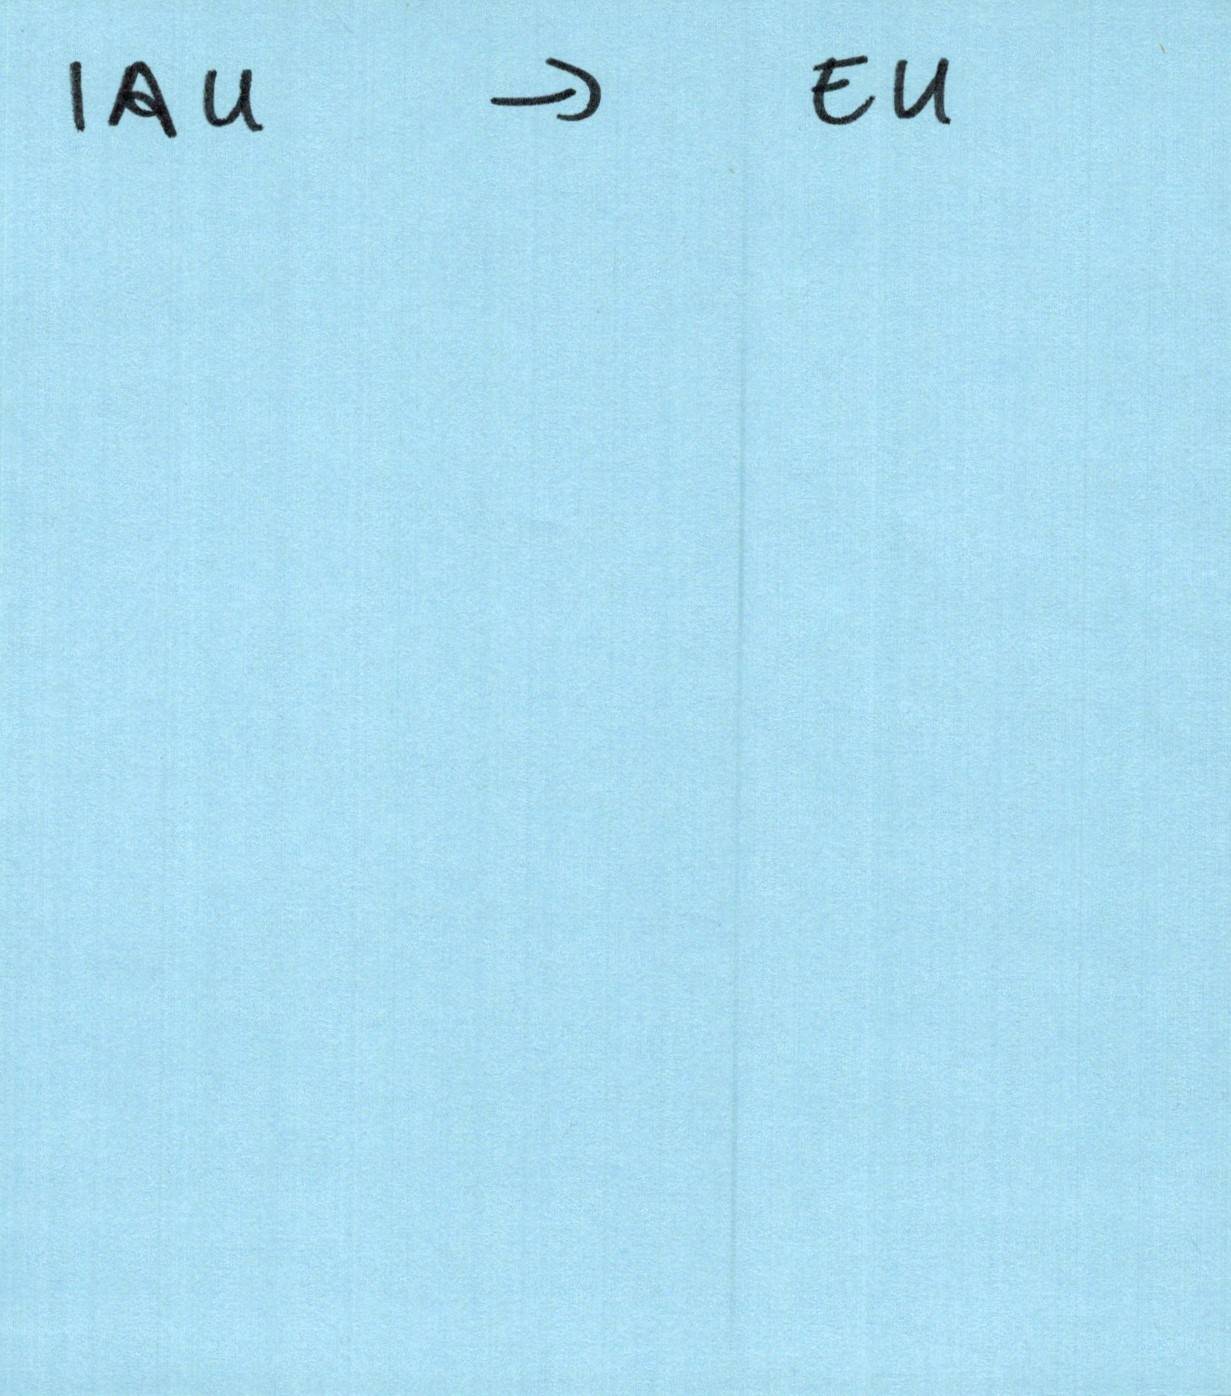 IAU → EU